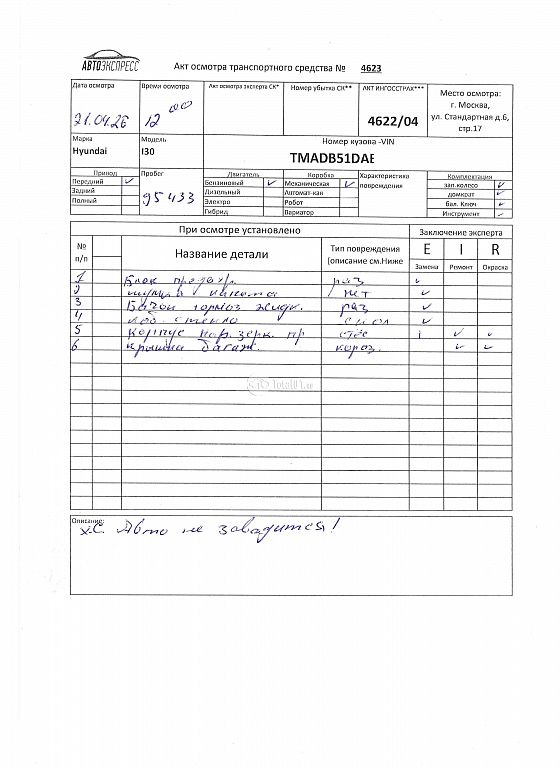 АВТОЭКСПРЕСС
Акт осмотра транспортного средства № 4623
Дата осмотра Время осмотра Акт осмотра эксперта СК* Номер убытка СК** АКТ ИНГОССТРАХ*** Место осмотра:
21.04.26 12 00 4622/04 г. Москва,
ул. Стандартная д.6,
стр.17
Марка Модель Номер кузова -VIN
Hyundai I30 TMADB51DAE
Привод Пробег Двигатель Коробка Характеристика повреждения Комплектация
Передний ✓ 95433 Бензиновый ✓ Механическая ✓ зап.колесо ✓
Задний Дизельный Автомат-кая домкрат ✓
Полный Электро Робот бал. Ключ ✓
Гибрид Вариатор Инструмент ✓
При осмотре установлено Заключение эксперта
№ п/п Название детали Тип повреждения (описание см.Ниже E I R
Замена Ремонт Окраска
1 Блок предохр. раз ✓
2 капота нет ✓
3 Бачок тормоз жидк. раз ✓
4 лоб. стекло скол ✓
5 Корпус нар. зерк. пр ✓ ✓
6 крышка багаж. короз. ✓ ✓
Total01
Описание:
х.С. Авто не заводится!